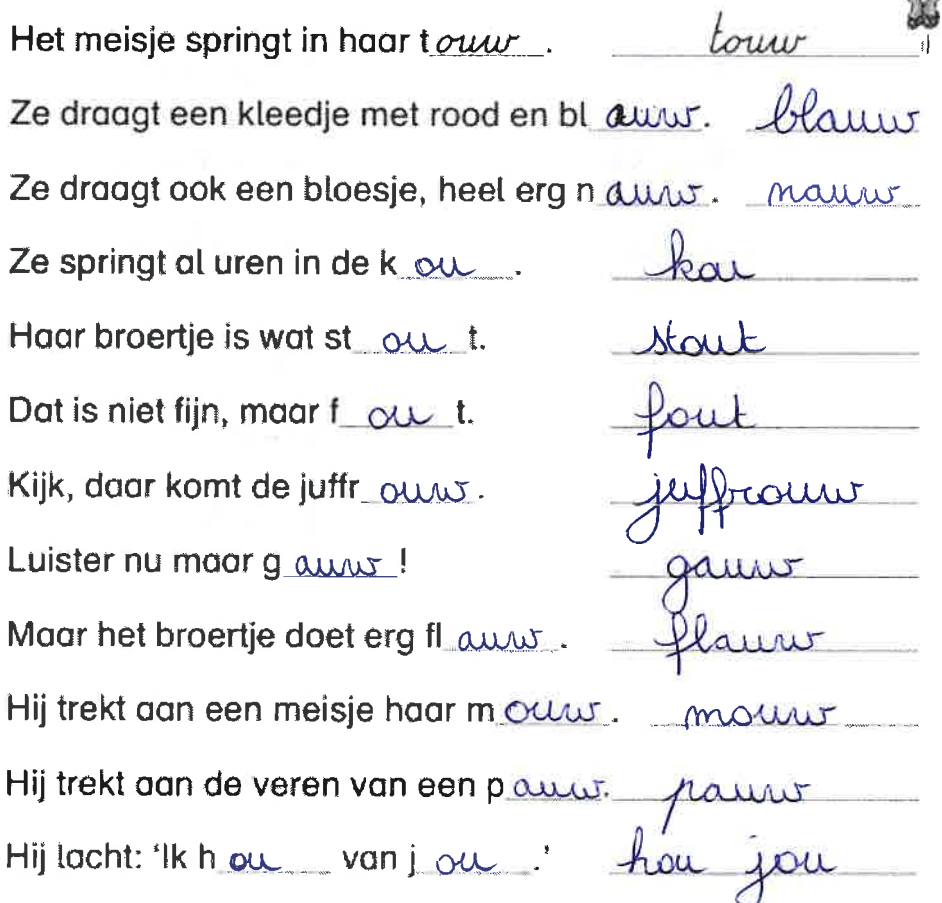 Het meisje springt in haar touw. touw
Ze draagt een kleedje met rood en bl auw. blauw
Ze draagt ook een bloesje, heel erg n auw. nauw
Ze springt al uren in de k ou. kou
Haar broertje is wat st ou t. stout
Dat is niet fijn, maar f ou t. fout
Kijk, daar komt de juffr ouw. juffrouw
Luister nu maar g auw! gauw
Maar het broertje doet erg fl auw. flauw
Hij trekt aan een meisje haar m ouw. mouw
Hij trekt aan de veren van een p auw. pauw
Hij lacht: 'Ik h ou van j ou.' hou jou